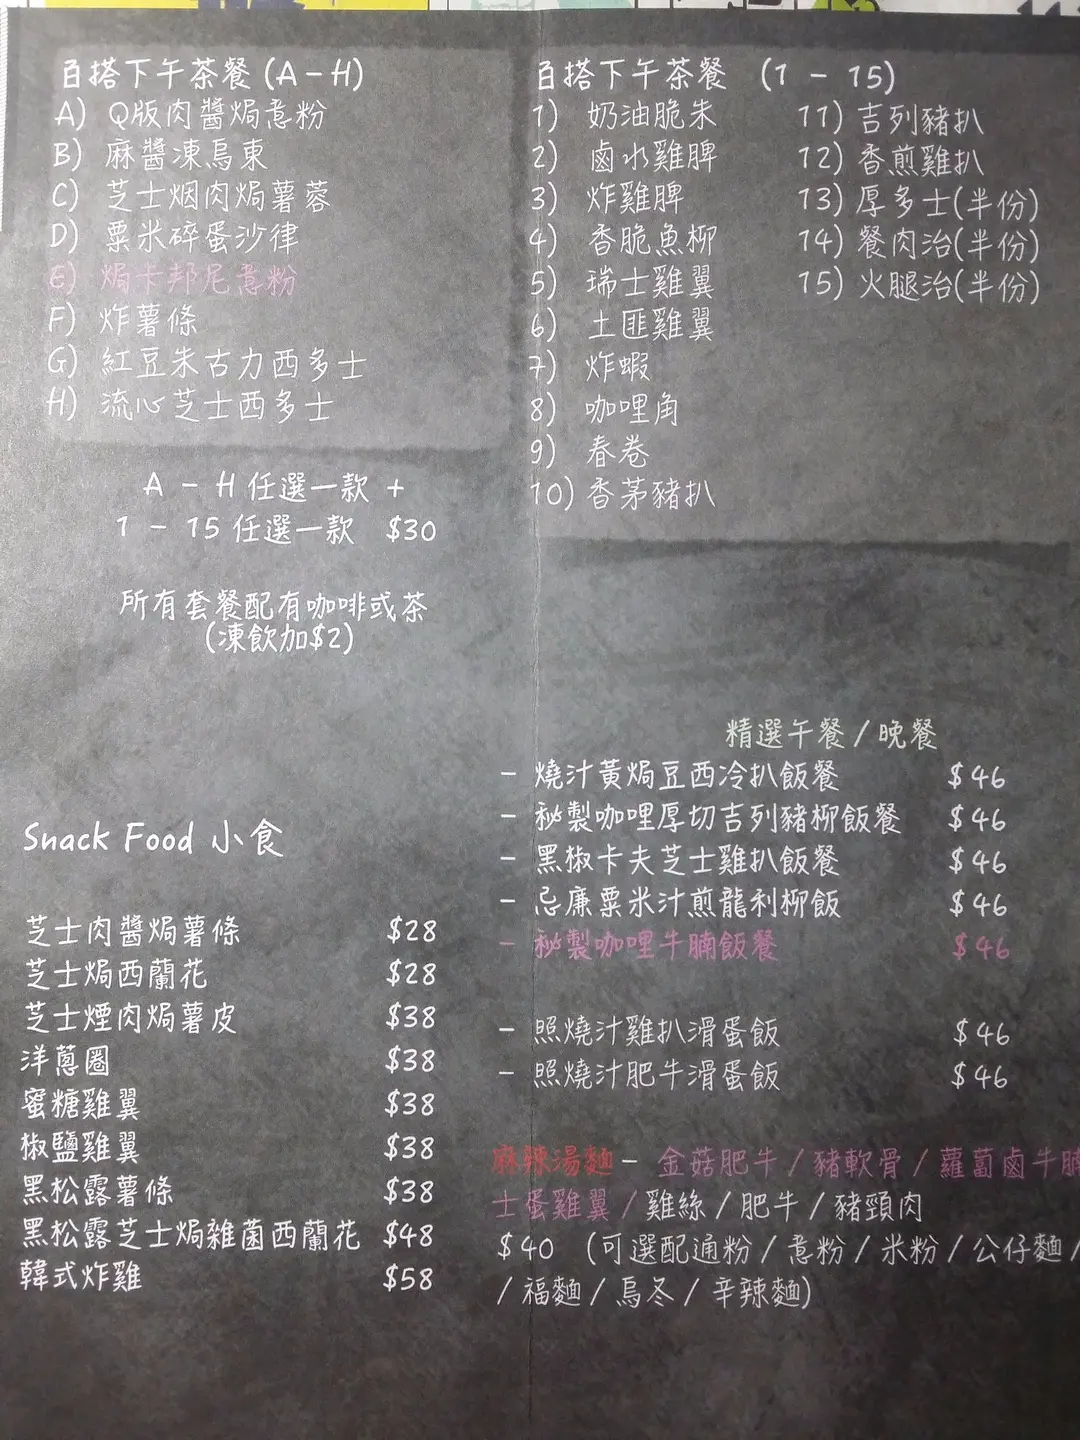 百搭下午茶餐 (A-H)
A) Q版肉醬焗意粉
B) 麻醬凍烏東
C) 芝士烟肉焗薯蓉
D) 粟米碎蛋沙律
E) 焗卡邦尼意粉
F) 炸薯條
G) 紅豆朱古力西多士
H) 流心芝士西多士
A - H 任選一款 +
1 - 15 任選一款 $30
所有套餐配有咖啡或茶
(凍飲加$2)
百搭下午茶餐 (1 - 15)
1) 奶油脆朱
2) 鹵水雞脾
3) 炸雞脾
4) 香脆魚柳
5) 瑞士雞翼
6) 土匪雞翼
7) 炸蝦
8) 咖哩角
9) 春卷
10) 香茅豬扒
11) 吉列豬扒
12) 香煎雞扒
13) 厚多士(半份)
14) 餐肉治(半份)
15) 火腿治(半份)
Snack Food 小食
芝士肉醬焗薯條 $28
芝士焗西蘭花 $28
芝士煙肉焗薯皮 $38
洋蔥圈 $38
蜜糖雞翼 $38
椒鹽雞翼 $38
黑松露薯條 $38
黑松露芝士焗雜菌西蘭花 $48
韓式炸雞 $58
精選午餐 / 晚餐
- 燒汁黃焗豆西冷扒飯餐 $46
- 秘製咖哩厚切吉列豬柳飯餐 $46
- 黑椒卡夫芝士雞扒飯餐 $46
- 忌廉粟米汁煎龍利柳飯 $46
- 秘製咖哩牛腩飯餐 $46
- 照燒汁雞扒滑蛋飯 $46
- 照燒汁肥牛滑蛋飯 $46
麻辣湯麵 - 金菇肥牛 / 豬軟骨 / 蘿蔔鹵牛腩
士蛋雞翼 / 雞絲 / 肥牛 / 豬頸肉
$40 (可選配通粉 / 意粉 / 米粉 / 公仔麵 /
/ 福麵 / 烏冬 / 辛辣麵)